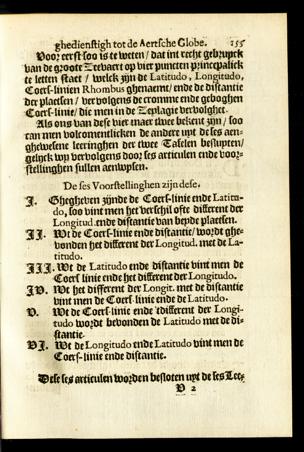 ghedienstigh tot de Aertsche Globe. 155
Voor eerst soo is te weten / dat int recht gebruyck
van de groote Zeevaert op vier puncten principalick
te letten staet / welck zijn de Latitudo, Longitudo,
Coers-linien Rhombus ghenaemt / ende de distantie
der plaetsen / vervolgens de cromme ende geboghen
Coers-linie / die men in de Zeylagie vervolghet.
Als ons van dese vier maer twee bekent zijn / soo
can men volcomentlicken de andere uyt de ses aen-
ghewesene leeringhen der twee Tafelen besluyten /
gelijck wy vervolgens door ses articulen ende voor-
stellinghen sullen aenwysen.
De ses Voorstellinghen zijn dese.
I. Ghegheven zijnde de Coers-linie ende Latitu-
do, soo vint men het verschil ofte different der
Longitud. ende distantie van beyde plaetsen.
II. Wt de Coers-linie ende distantie / wordt ghe-
vonden het different der Longitud. met de La-
titudo.
III. Wt de Latitudo ende distantie vint men de
Coers linie ende het different der Longitudo.
IV. Wt het different der Longit. met de distantie
vint men de Coers-linie ende de Latitudo.
V. Wt de Coers-linie ende 'tdifferent der Longi-
tudo wordt bevonden de Latitudo met de di-
stantie.
VI. Wt de Longitudo ende Latitudo vint men de
Coers-linie ende distantie.
Dese ses articulen worden besloten uyt de ses Lee-
V 2